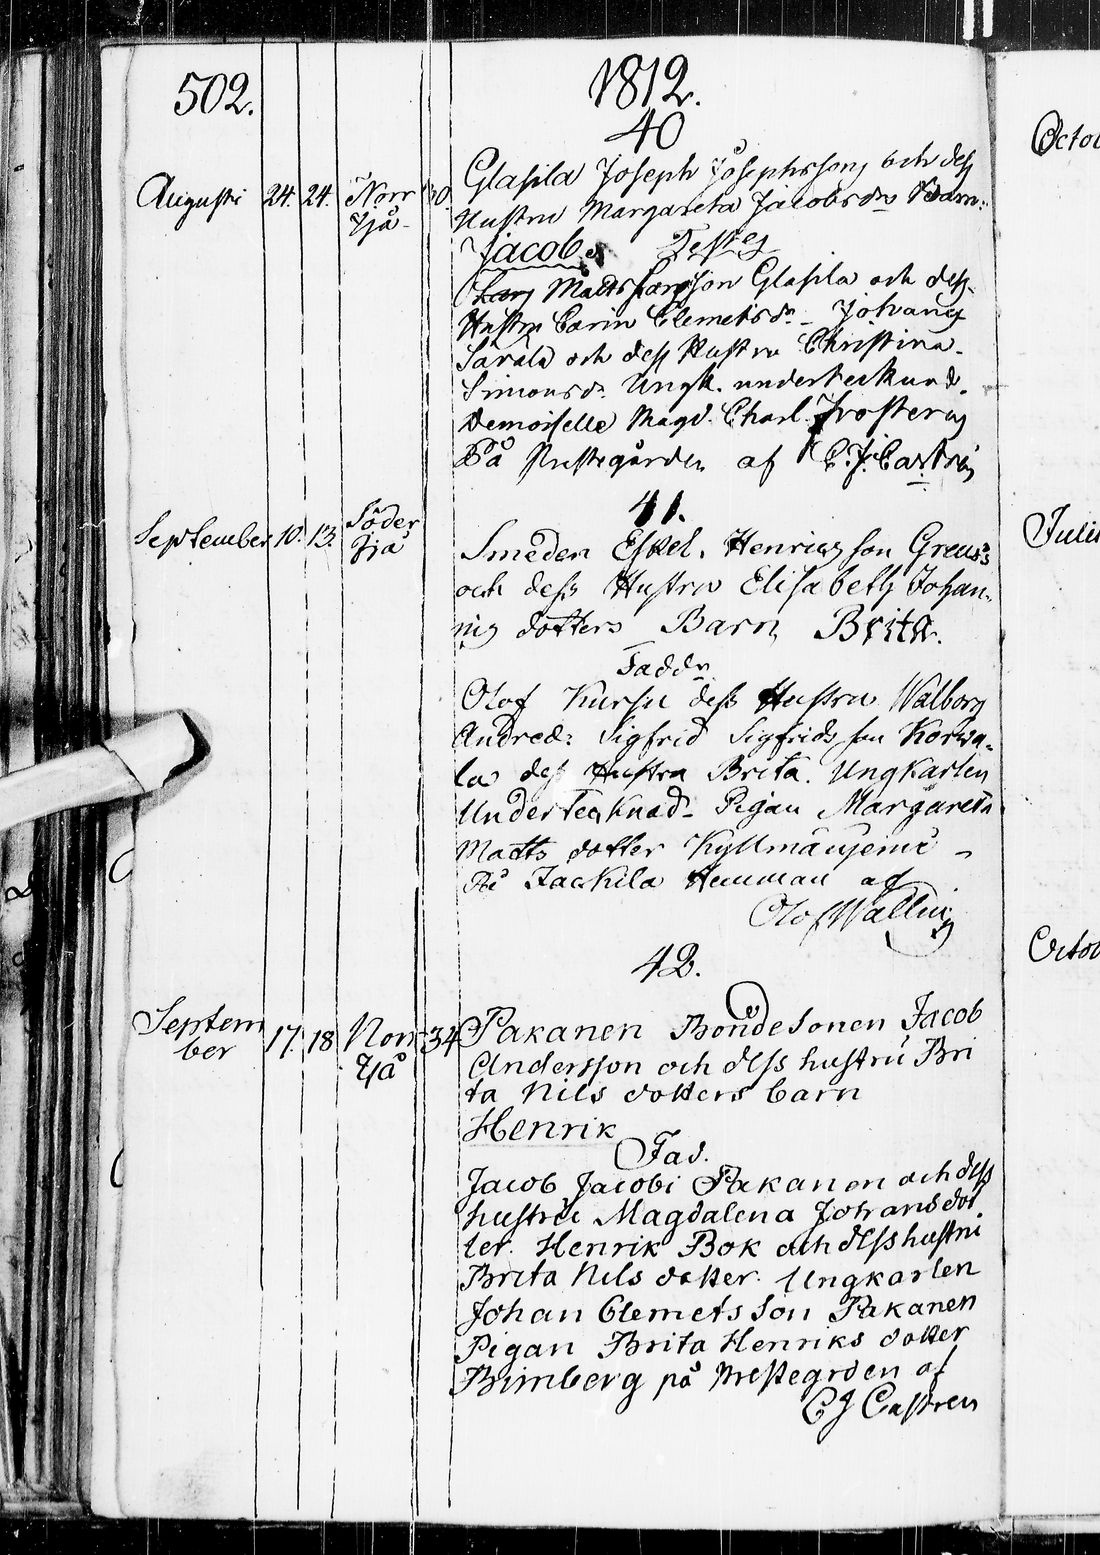 502.
1812.
40
Augusti 24. 24. Norr Yjå 30. Glasila Joseph Josephsson och dess
Hustru Margareta Jacobsdr Barn:
Jacob. Testes
Matts Larsson Glasila och dess
Hustru Carin Clemetsdr - Johan
Sarala och dess Hustru Christina
Simonsdr. Ungk. undertecknad.
Demoiselle Magd. Charl. Frosterus
På Prestegården af C. J. Castrén
41.
September 10. 13. Söder Yjå Smeden Eskel Henricsson Greus's
och dess Hustru Elisabeth Johan-
nis dotters Barn Brita.
Faddr
Olof Kursu dess Hustru Walborg
Andred: Sigfrid Sigfridsson Korwa-
la dess Hustra Brita. Ungkarlen
Undertecknad - Pigan Margareta
Matts dotter
På Jackila Hemman af
Olof Wallin
42.
Septem
ber 17. 18 Norr Yjå 34 Pakanen Bondesonen Jacob
Andersson och dess hustru Bri
ta Nils dotters barn
Henrik
Fad.
Jacob Jacobi Pakanen och dess
hustru Magdalena Johansdot
ter. Henrik Bok och dess hustru
Brita Nils dotter. Ungkarlen
Johan Clemetsson Pakanen
Pigan Brita Henriks dotter
Bimberg på Prestegrden af
C J Castren
Octob
Julii
Octob